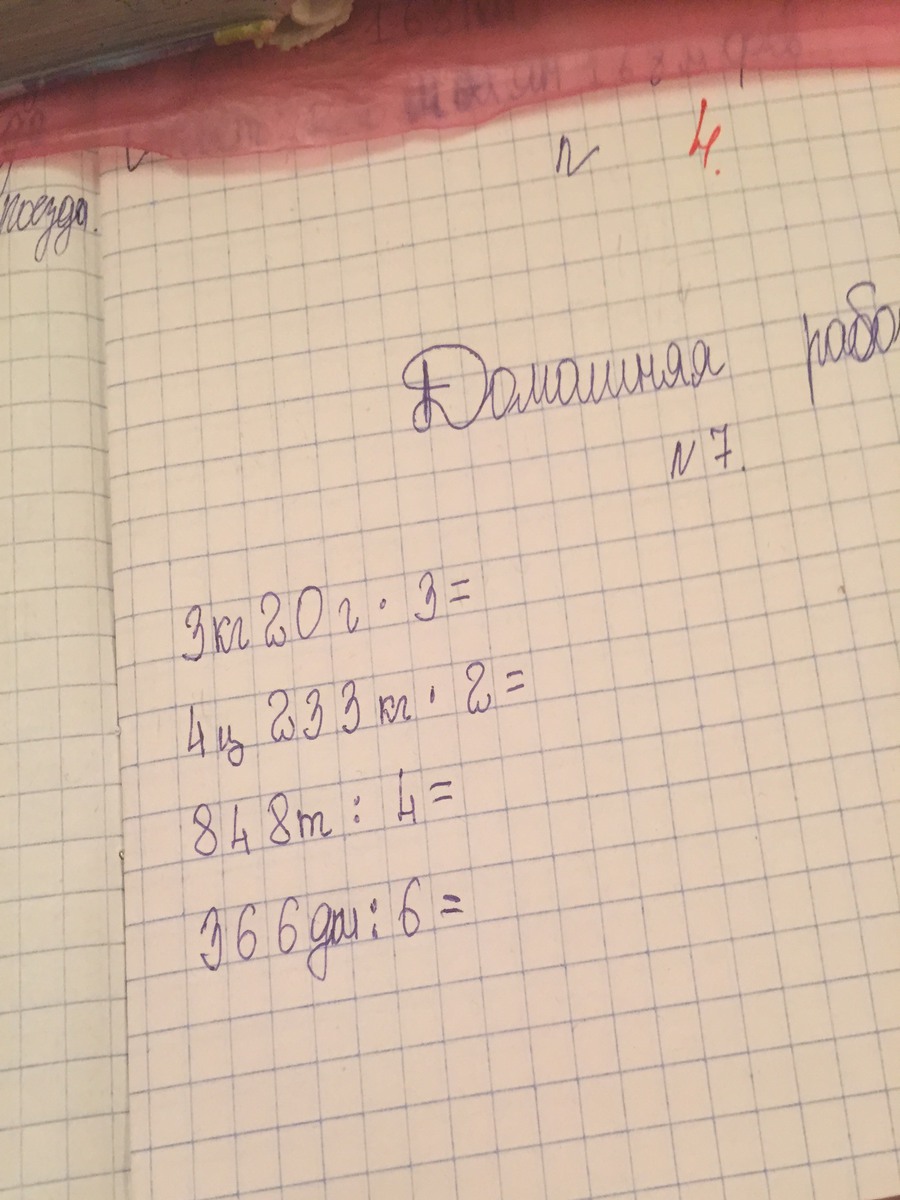 поезда.
4.
Домашняя рабо
N 7.
3кг 20 г · 3 =
4ц 233 кг · 2 =
848т : 4 =
366дм : 6 =